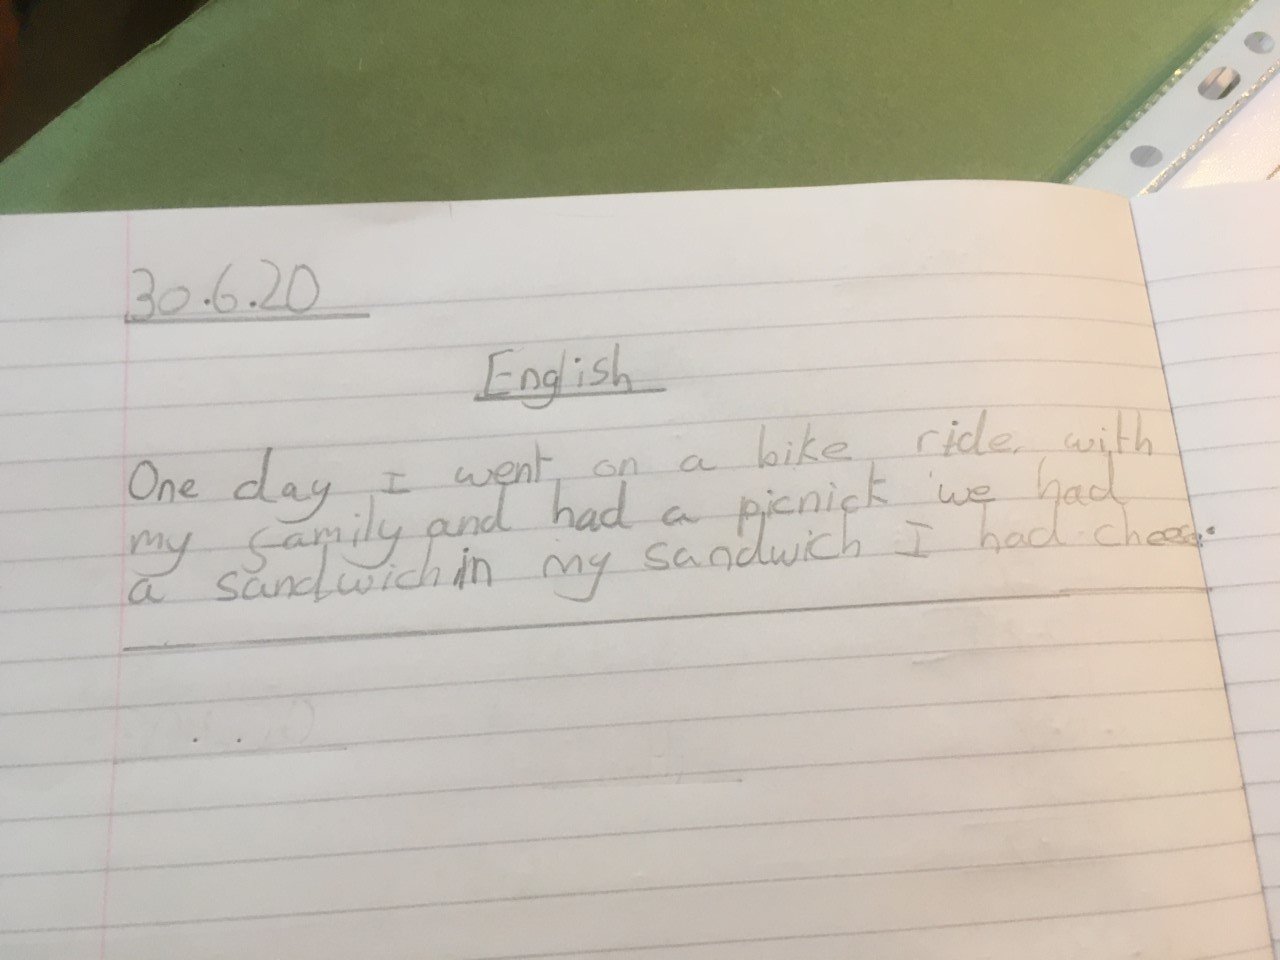 30.6.20
English
One day I went on a bike ride with
my family and had a picnick we had
a sandwich in my sandwich I had cheese.